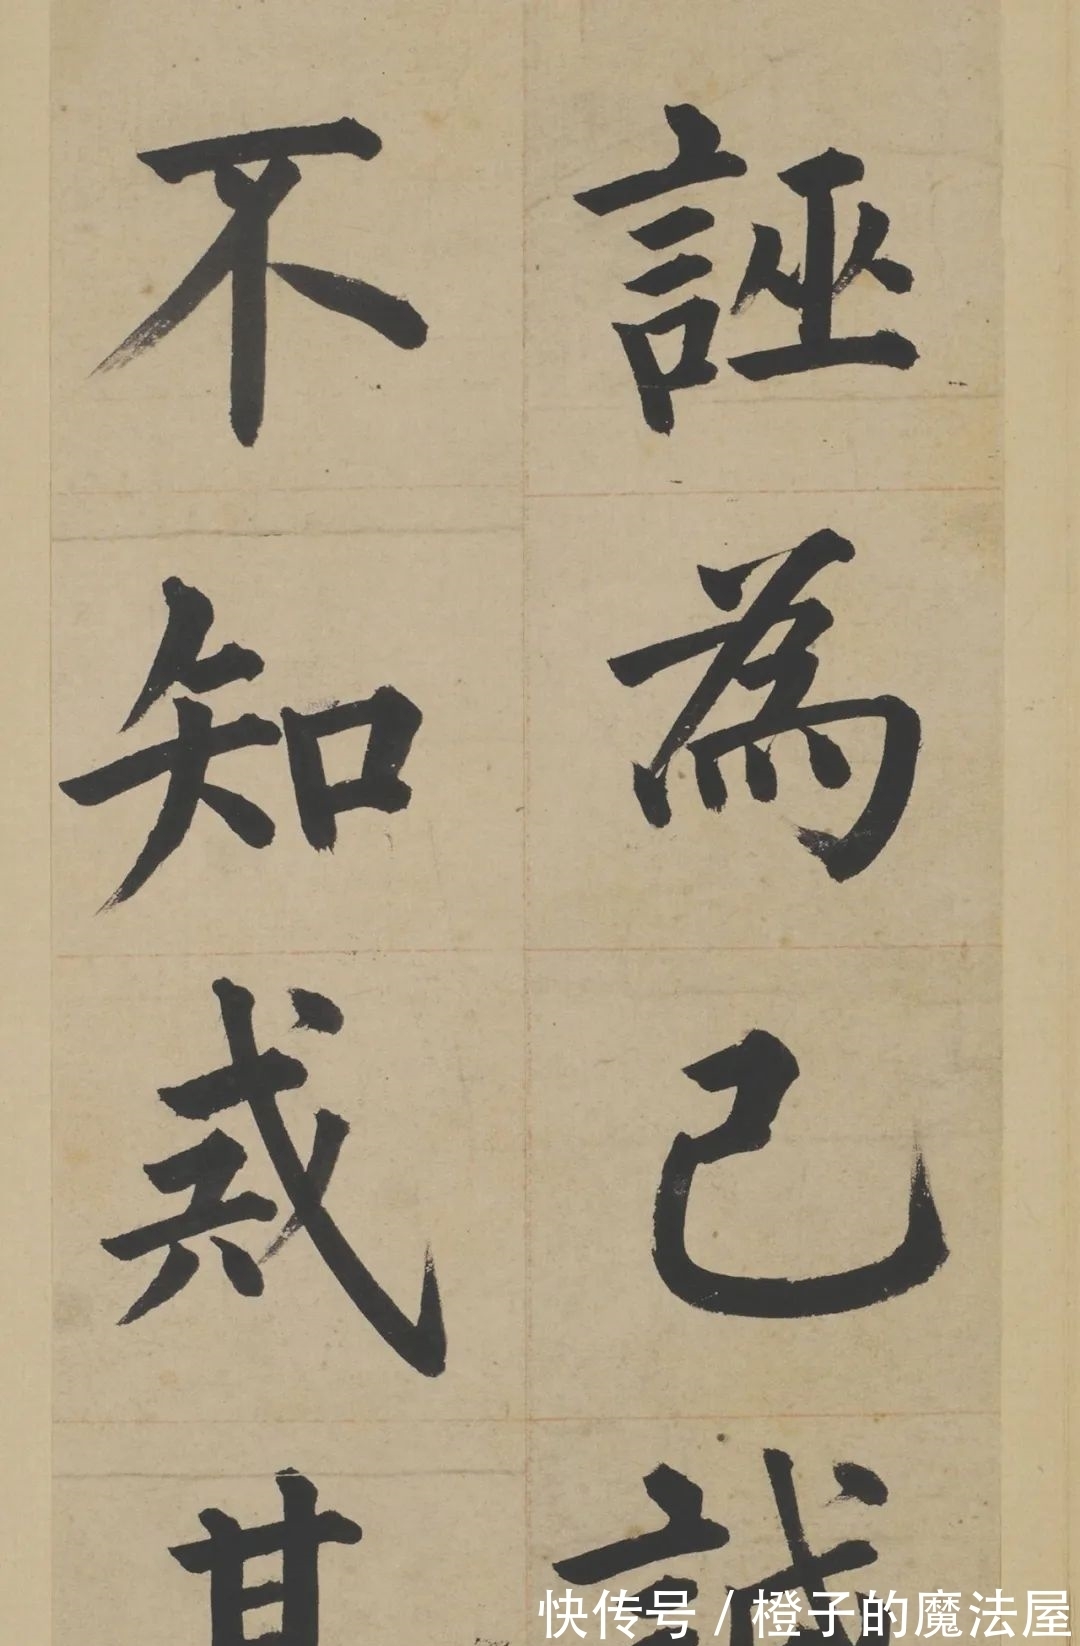 誣為己誠
不知戒其
快传号 / 橙子的魔法屋